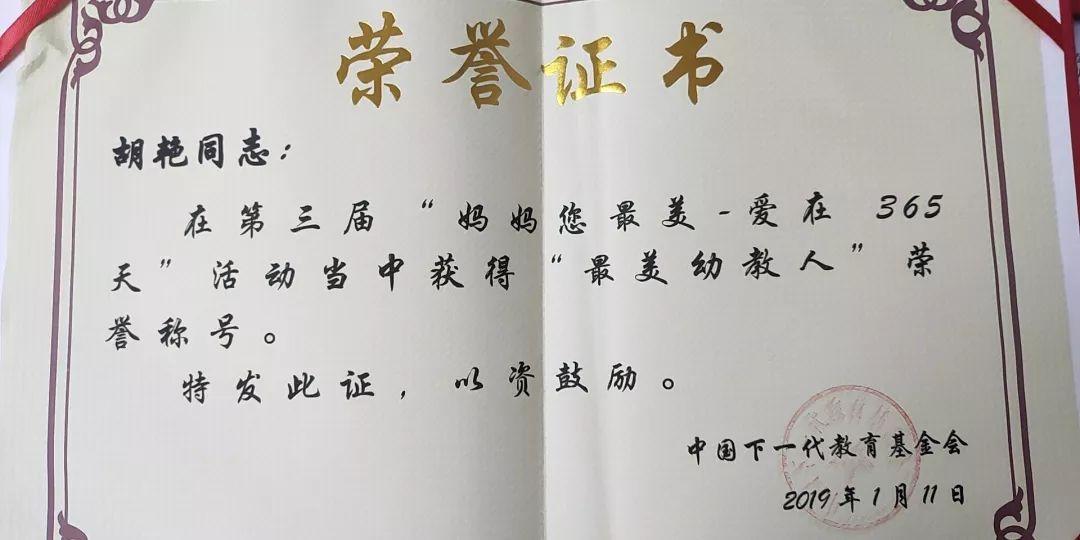 荣誉证书
胡艳同志：
在第三届“妈妈您最美-爱在 365
天”活动当中获得“最美幼教人”荣
誉称号。
特发此证，以资鼓励。
中国下一代教育基金会
2019年1月11日